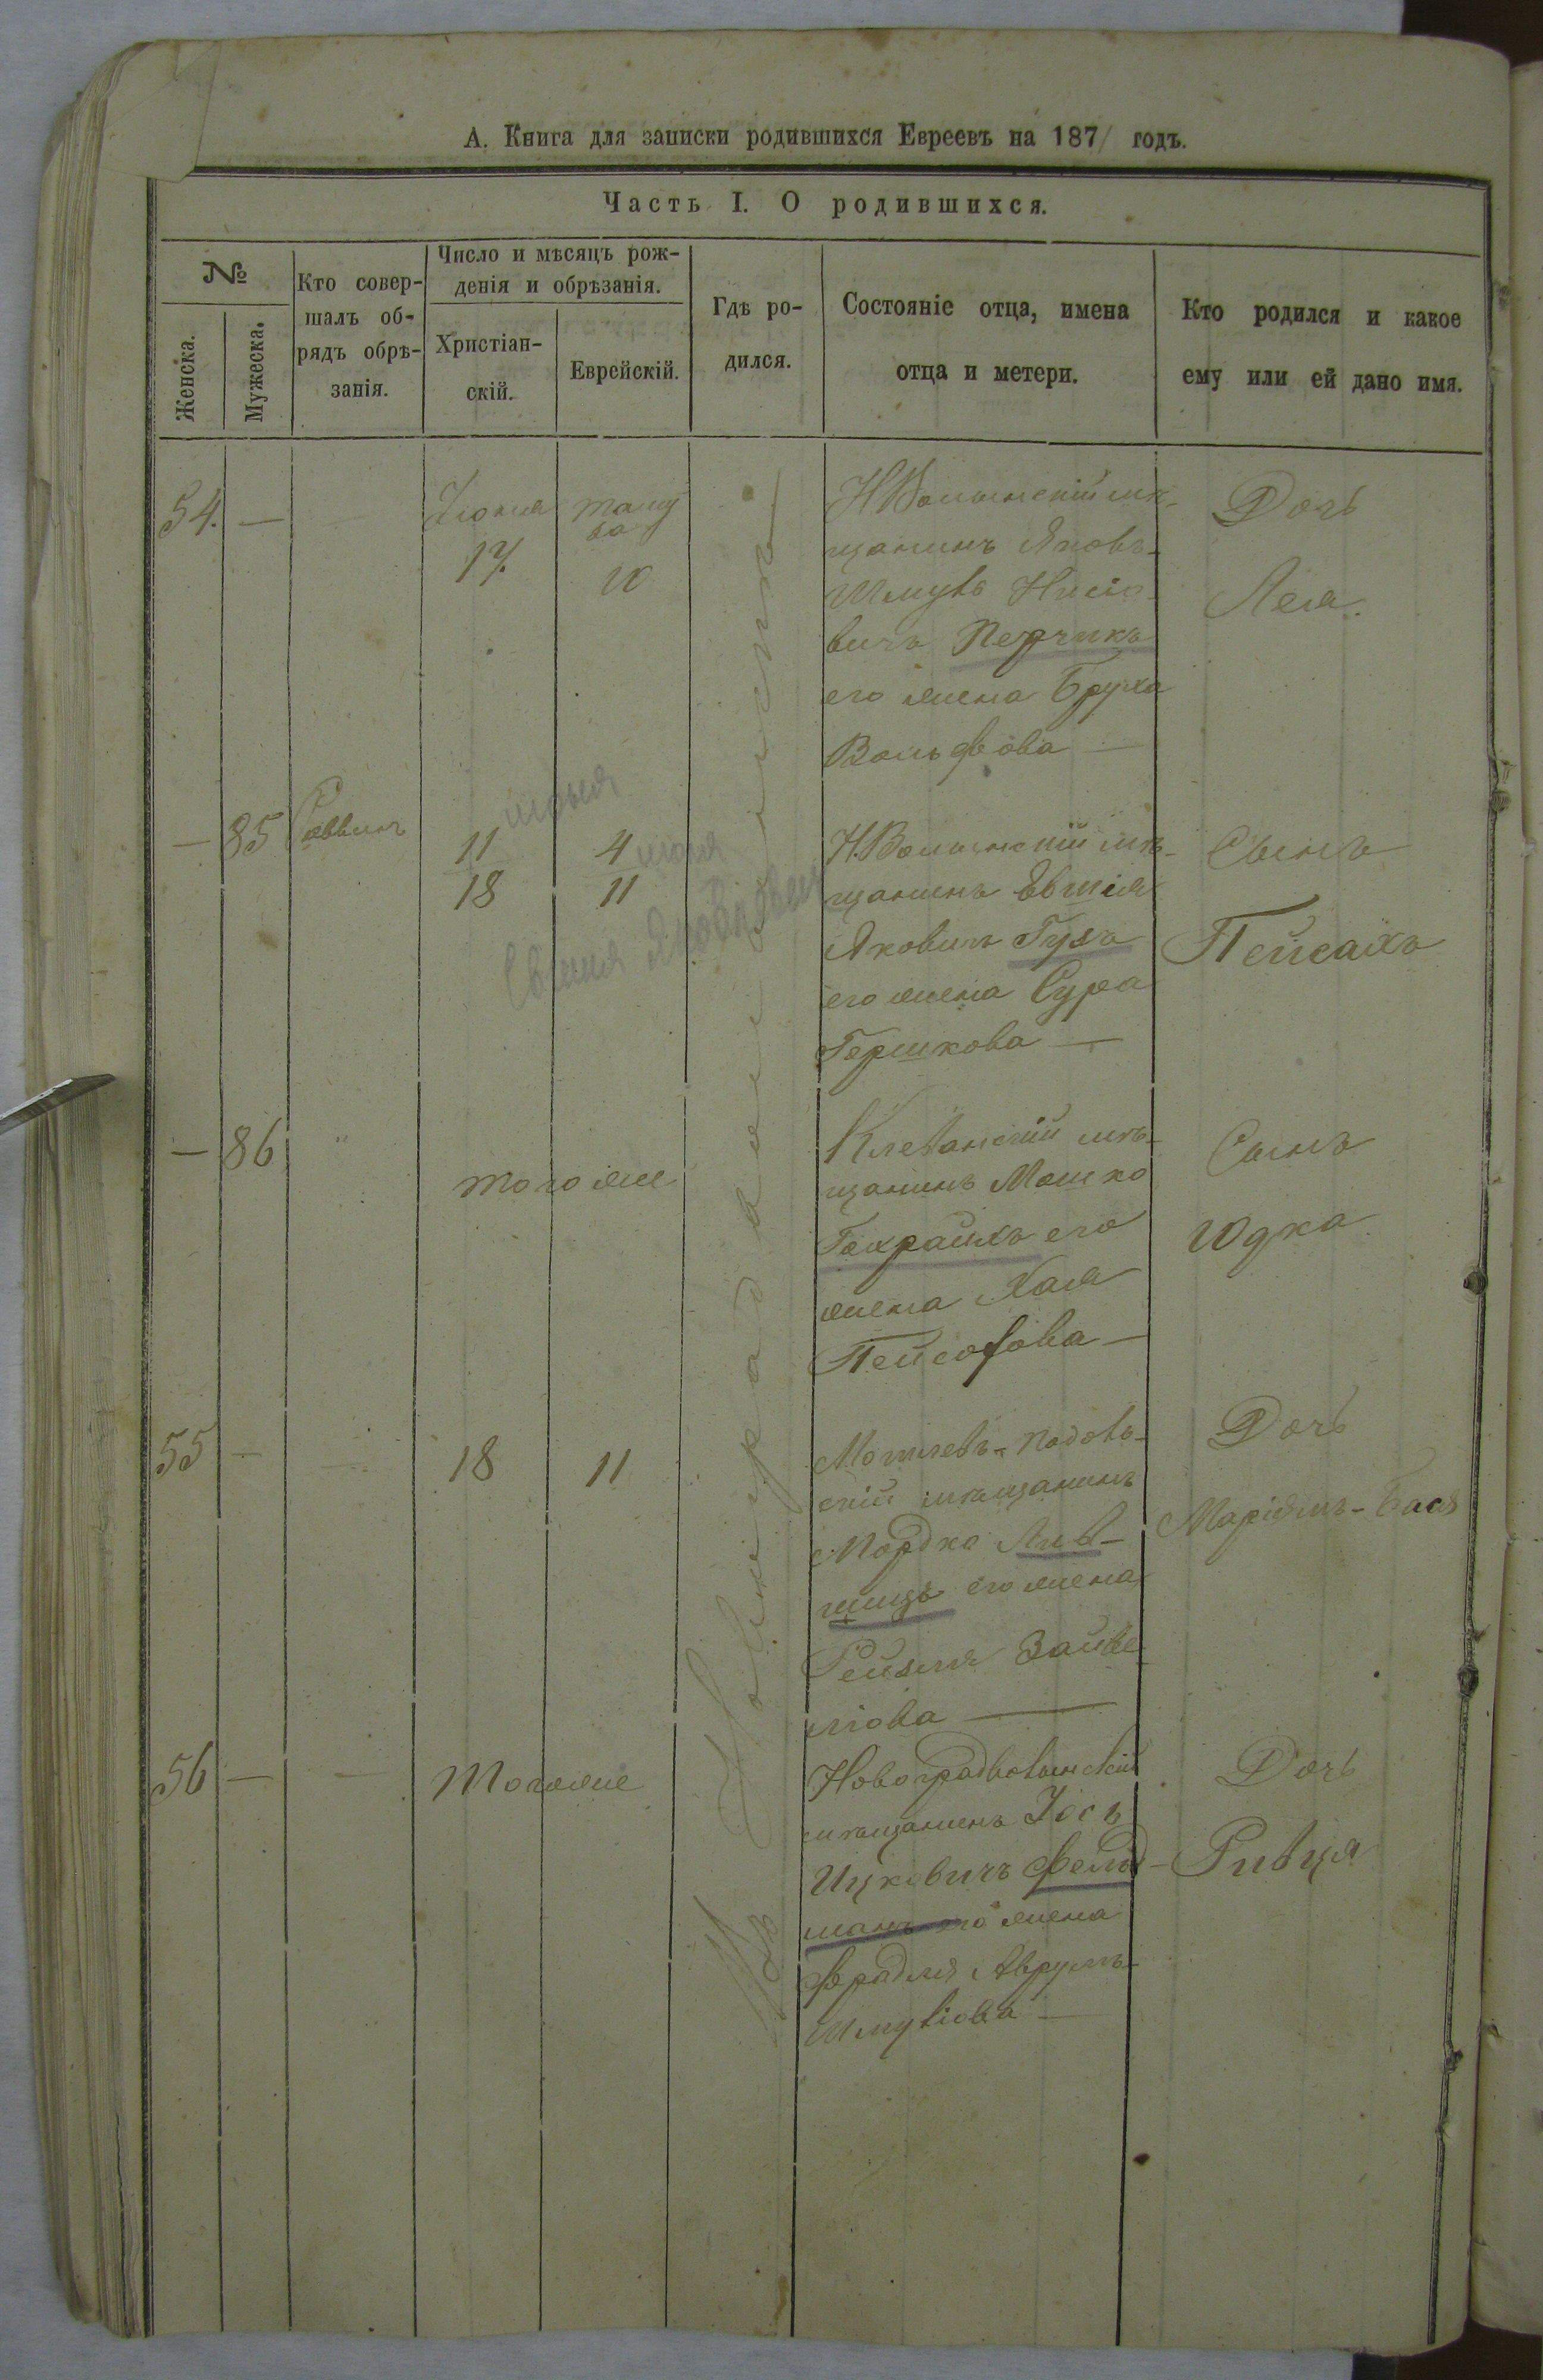 А. Книга для записки родившихся Евреевъ на 1871 годъ.
Часть I. О родившихся.
№
Женска.
Мужеска.
Кто совер-
шалъ об-
рядъ обрѣ-
занія.
Число и мѣсяцъ рож-
денія и обрѣзанія.
Христіан-
скій.
Еврейскій.
Гдѣ ро-
дился.
Состояніе отца, имена
отца и метери.
Кто родился и какое
ему или ей дано имя.
54. — —
Іюня
17.
таму
за
10
НВолынскій мѣ-
щанинъ Яковъ-
Шмуль Нисіо-
вичъ Перчикъ
его жена Бруха
Вольфова —
Дочь
Лея.
Въ Новоградволынскѣ
— 85
11
18
июня
4
11
июля
Евшия Яковлевич
Н.Волынскій мѣ-
щанинъ Евшія
Яковичъ Гузъ
его жена Сура
Гершкова —
Сынъ
Пейсахъ
— 86 "
того же
Клеванскій мѣ-
щанинъ Мошко
его
жена Хая
Пейсахова —
Сынъ
Юдка
55 — —
18
11
Могилевъ-Подоль-
скій мѣщанинъ
Мордко Лив-
шицъ его жена
Рейзля Зайве-
ліова —
Дочь
Маріямъ-Бася
56 — —
Того же
Новоградволынскій
мѣщанинъ Іосъ
Ицковичъ Фельд-
манъ его жена
Фрадля Аврумъ-
Шмуліова —
Дочь
Ривця